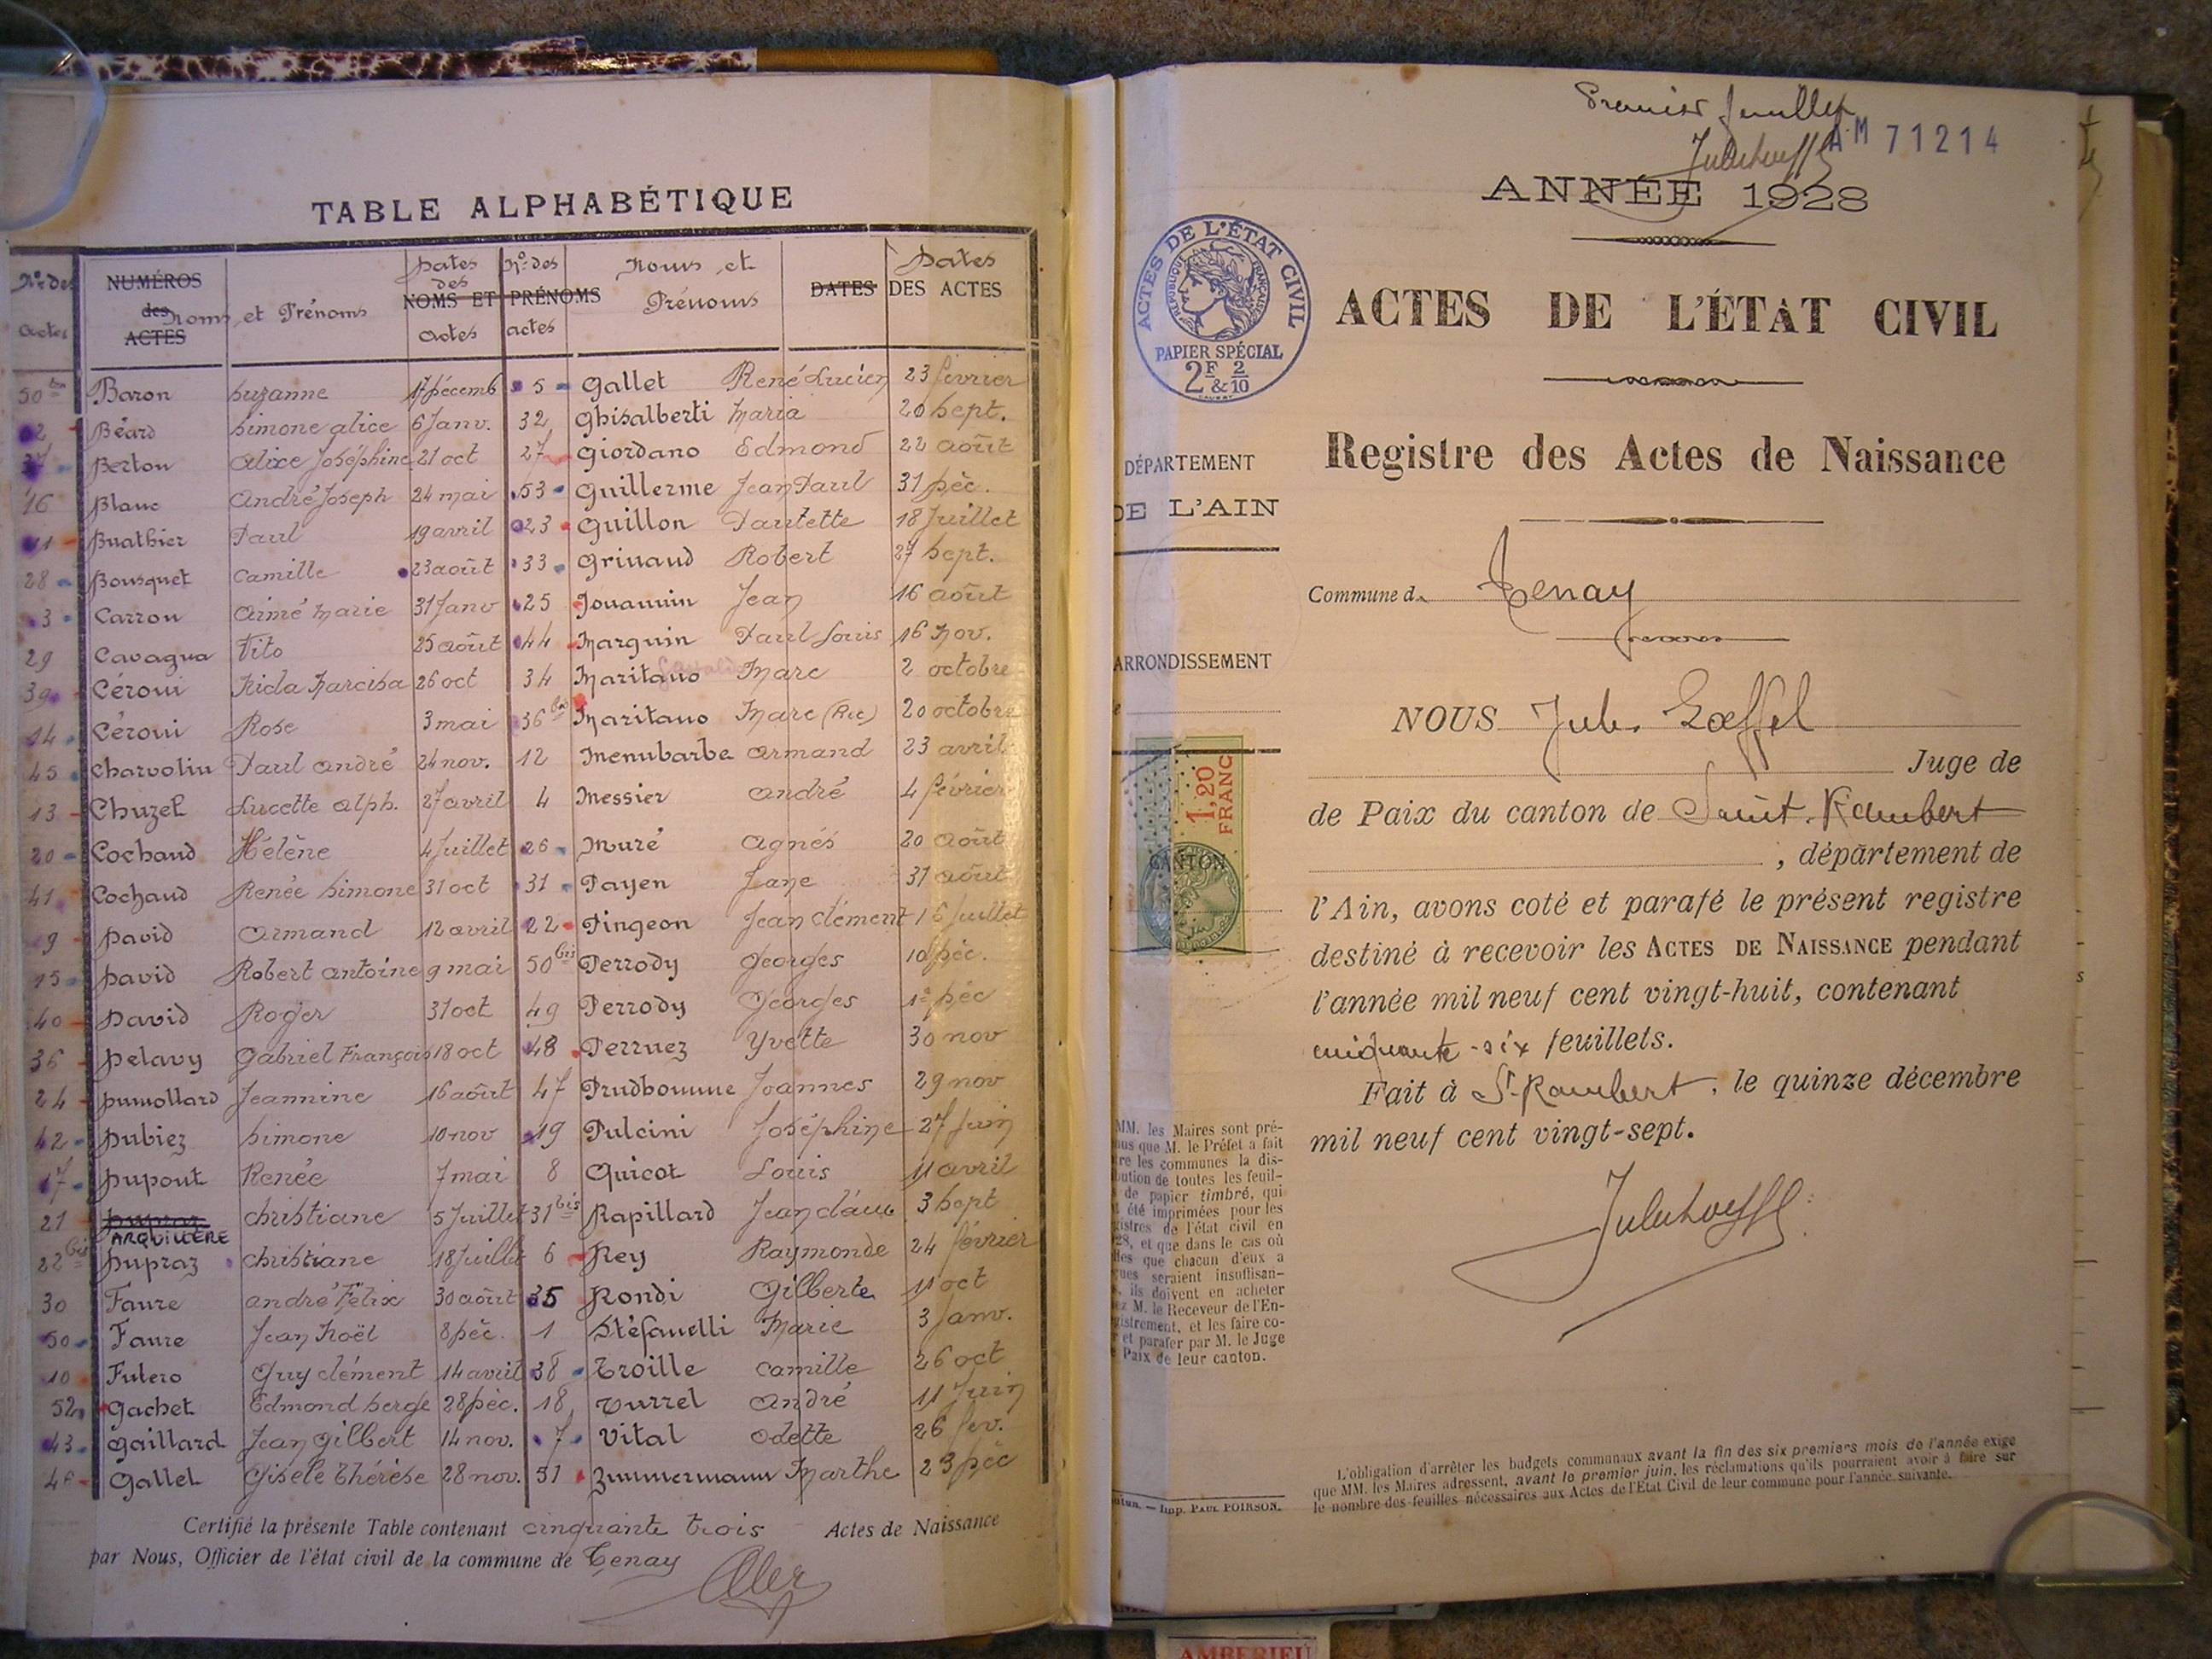 TABLE ALPHABÉTIQUE
Nos des Actes NUMÉROS des ACTES Noms et Prénoms Dates des Actes NOMS ET PRÉNOMS Nos des actes Noms et Prénoms DATES Dates DES ACTES
50 ter Baron Suzanne 17 Décemb 5 Gallet René Lucien 23 février
2 Béard Simone Alice 6 Janv. 32 Ghisalberti Maria 20 Sept.
37 Berton Alixe Joséphine 21 oct 27 Giordano Edmond 22 août
16 Blanc André Joseph 24 mai 53 Guillerme Jean Paul 31 Déc.
11 Buathier Paul 19 avril 23 Guillon Paulette 18 Juillet
28 Bousquet Camille 23 août 33 Grinand Robert 27 Sept.
3 Carron Aimé Marie 31 Janv 25 Jouannin Jean 16 août
29 Cavagna Vito 25 août 44 Marguin Paul Louis 16 Nov.
39 Céroni Nida Narcisa 26 oct 34 Maritano Marc 2 octobre
14 Céroni Rose 3 mai 36 bis Maritano Marc (Rec) 20 octobre
45 Charvolin Paul André 24 nov. 12 Menubarbe Armand 23 avril
13 Chuzel Lucette Alph. 27 avril 4 Messier André 4 février
20 Cochand Hélène 4 Juillet 26 Muré Agnés 20 août
41 Cochand Renée Simone 31 oct 31 Payen Jane 31 août
9 David Armand 12 avril 22 Pingeon Jean Clément 16 Juillet
15 David Robert Antoine 9 mai 50 bis Perrody Georges 10 Déc.
40 David Roger 31 oct 49 Perrody Georges 1er Déc
36 Delavy Gabriel François 18 oct 48 Perruez Yvette 30 nov
24 Dumollard Jeannine 16 août 47 Prudhomme Joannes 29 nov
42 Dubiez Simone 10 nov 19 Pulcini Joséphine 27 Juin
17 Dupont Renée 7 mai 8 Quicot Louis 11 avril
21 Dupraz ARQUILLÈRE Christiane 5 Juillet 31 bis Rapillard Jean Claude 3 Sept
22 bis Dupraz Christiane 18 Juillet 6 Rey Raymonde 24 février
30 Faure André Félix 30 août 35 Rondi Gilberte 11 oct
50 Faure Jean Noël 8 Déc. 1 Stéfanelli Marie 3 Janv.
10 Futero Guy Clément 14 avril 38 Troille Camille 26 oct
52 Gachet Edmond Serge 28 Déc. 18 Turrel André 11 Juin
43 Gaillard Jean Gilbert 14 nov. 7 Vital Odette 26 fev.
46 Gallet Gisèle Thérèse 28 nov. 51 Zimmermann Marthe 23 Déc
Certifié la présente Table contenant cinquante trois Actes de Naissance
par Nous, Officier de l'état civil de la commune de Tenay
Premier feuillet
AM 71214
ANNÉE 1928
ACTES DE L'ÉTAT CIVIL
RÉPUBLIQUE FRANÇAISE
PAPIER SPÉCIAL
2F & 2/10
ACTES DE L'ÉTAT CIVIL
Registre des Actes de Naissance
DÉPARTEMENT
DE L'AIN
Commune de Tenay
ARRONDISSEMENT
NOUS Jules Lœffel
Juge de
1,20 FRANC
CANTON
de Paix du canton de Saint-Rambert
, département de
l'Ain, avons coté et parafé le présent registre
destiné à recevoir les ACTES DE NAISSANCE pendant
l'année mil neuf cent vingt-huit, contenant
cinquante-six feuillets.
Fait à St-Rambert, le quinze décembre
mil neuf cent vingt-sept.
MM. les Maires sont pré-
nus que M. le Préfet a fait
re les communes la dis-
bution de toutes les feuil-
de papier timbré, qui
été imprimées pour les
gistres de l'état civil en
28, et que dans le cas où
lles que chacun d'eux a
ques seraient insuffisan-
, ils doivent en acheter
ez M. le Receveur de l'En-
gistrement, et les faire co-
r et parafer par M. le Juge
Paix de leur canton.
L'obligation d'arrêter les budgets communaux avant la fin des six premiers mois de l'année exige
que MM. les Maires adressent, avant le premier juin, les réclamations qu'ils pourraient avoir à faire sur
le nombre des feuilles nécessaires aux Actes de l'Etat Civil de leur commune pour l'année suivante.
Imp. PAUL POIRSON.
AMBERIEU